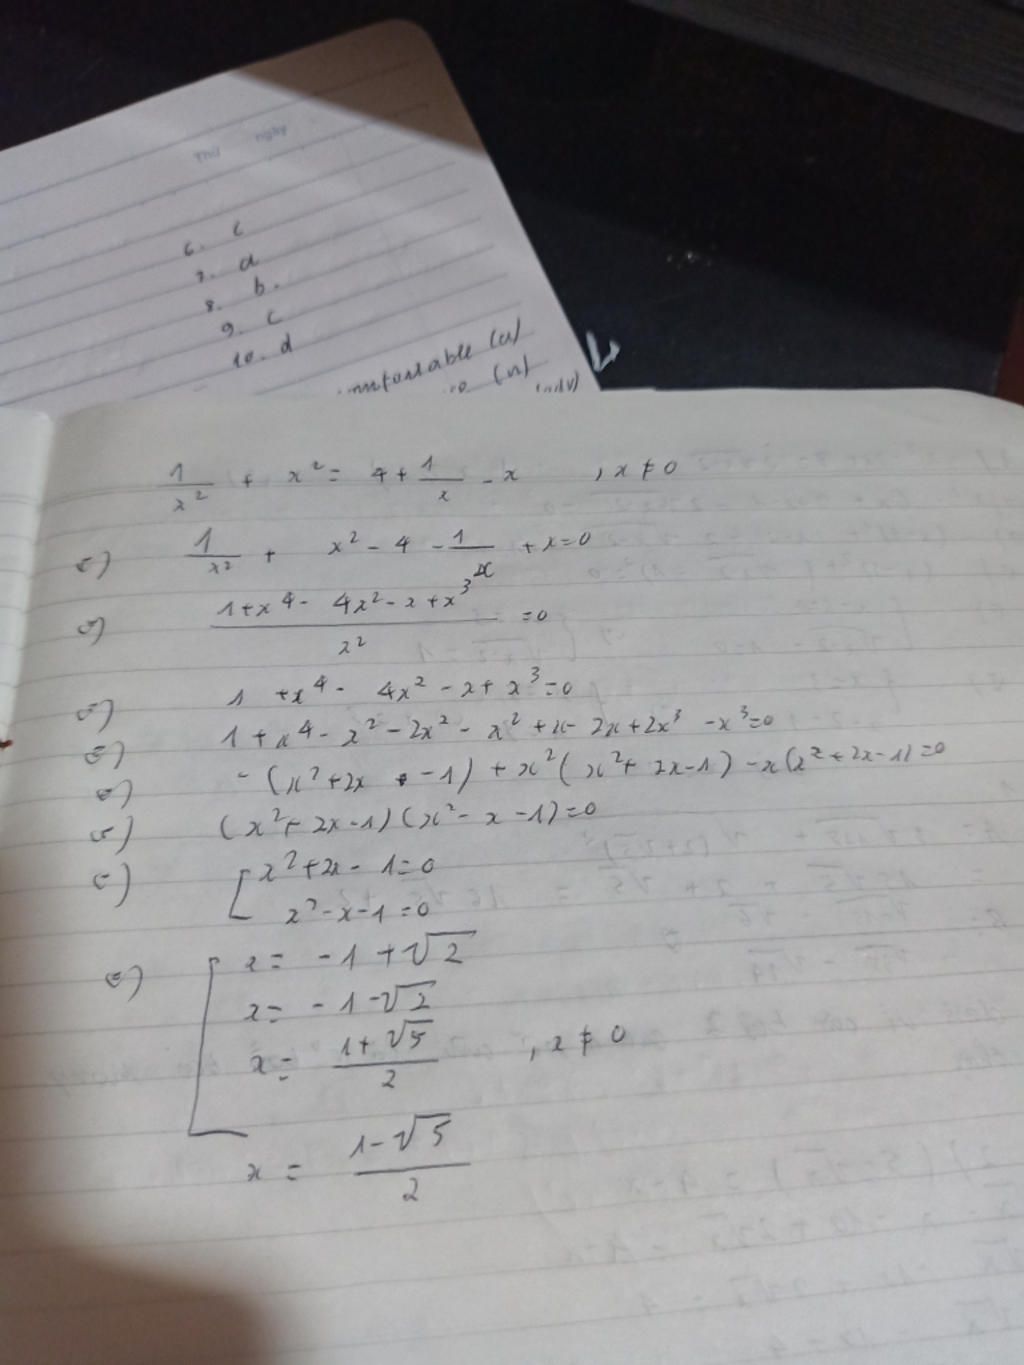 Thứ ngày
6. c
7. a
8. b.
9. c
10. d
(a)
(n)
(adv)
1/x² + x² = 4 + 1/x - x , x ≠ 0
⇔) 1/x² + x² - 4 - 1/x + x = 0
⇔) (1 + x⁴ - 4x² - x + x³)/x² = 0
⇔) 1 + x⁴ - 4x² - x + x³ = 0
⇔) 1 + x⁴ - x² - 2x² - x² + x - 2x + 2x³ - x³ = 0
⇔) - (x² + 2x - 1) + x² (x² + 2x - 1) - x (x² + 2x - 1) = 0
⇔) (x² + 2x - 1) (x² - x - 1) = 0
⇔) [ x² + 2x - 1 = 0
x² - x - 1 = 0
⇔) [ x = -1 + √2
x = -1 - √2
x = (1 + √5)/2 , x ≠ 0
x = (1 - √5)/2